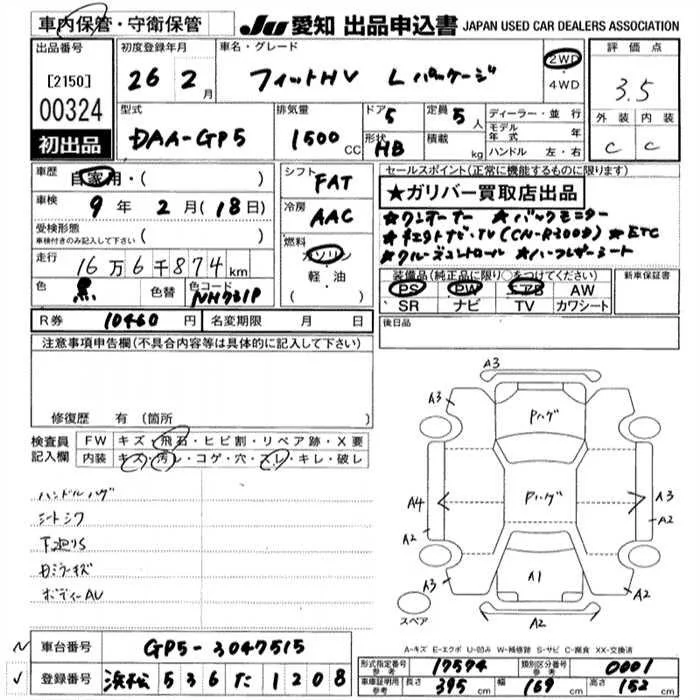 車内保管・守衛保管
JU 愛知 出品申込書 JAPAN USED CAR DEALERS ASSOCIATION
出品番号
[2150]
00324
初出品
初度登録年月
26 2月
車名・グレード
フィットHV Lパッケージ
2WD
・
4WD
評価点
3.5
外装 内装
C C
型式
DAA-GP5
排気量
1500 CC
ドア 5
形状 HB
定員 5人
積載 kg
ディーラー・並行
モデル年式 年
ハンドル 左・右
車歴
自家用・( )
車検
9年 2月(18日)
受検形態
車検付きのみ記入して下さい ( )
走行
16万6千874km
色
黒
色替
色コード
NH731P
シフト
FAT
冷房
AAC
燃料
ガソリン
・
軽・油
( )
セールスポイント(正常に機能するものに限ります)
★ガリバー買取店出品
★ワンオーナー ★バックモニター
★ナビTV(CN-R300D) ★ETC
★クルーズコントロール ★ハーフレザーシート
装備品(純正品に限り○をつけてください)
PS PW エアB AW
SR ナビ TV カワシート
新車保証書
R券 10460円
名変期限 月 日
後日品
注意事項申告欄(不具合内容等は具体的に記入して下さい)
修復歴 有(箇所
検査員
記入欄
FW キズ・飛石・ヒビ割・リペア跡・X要
内装 キズ・汚レ・コゲ・穴・スレ・キレ・破レ
ハンドルハゲ
シートシワ
下廻りS
ミラーキズ
ボディーAU
A3
A3
A3
Pハゲ
A4
Pハゲ
A3
A2
A2
A3
A1
A2
A2
スペア
A-キズ E-エクボ U-凹み W-補修跡 S-サビ C-腐食 XX-交換済
車台番号 GP5-3047515
登録番号 浜松 536 た 1208
形式指定番号
参考
17594
類別区分番号
参考
0001
車庫証明用
参考
長さ 395cm 幅 169cm 高さ 152cm